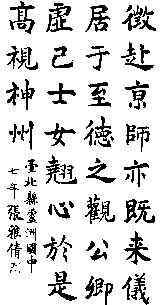 徵赴京師亦既来儀
居于至德之觀公卿
虛己士女翹心於是
高視神州
臺北縣鷺洲國中
七年 張雅倩